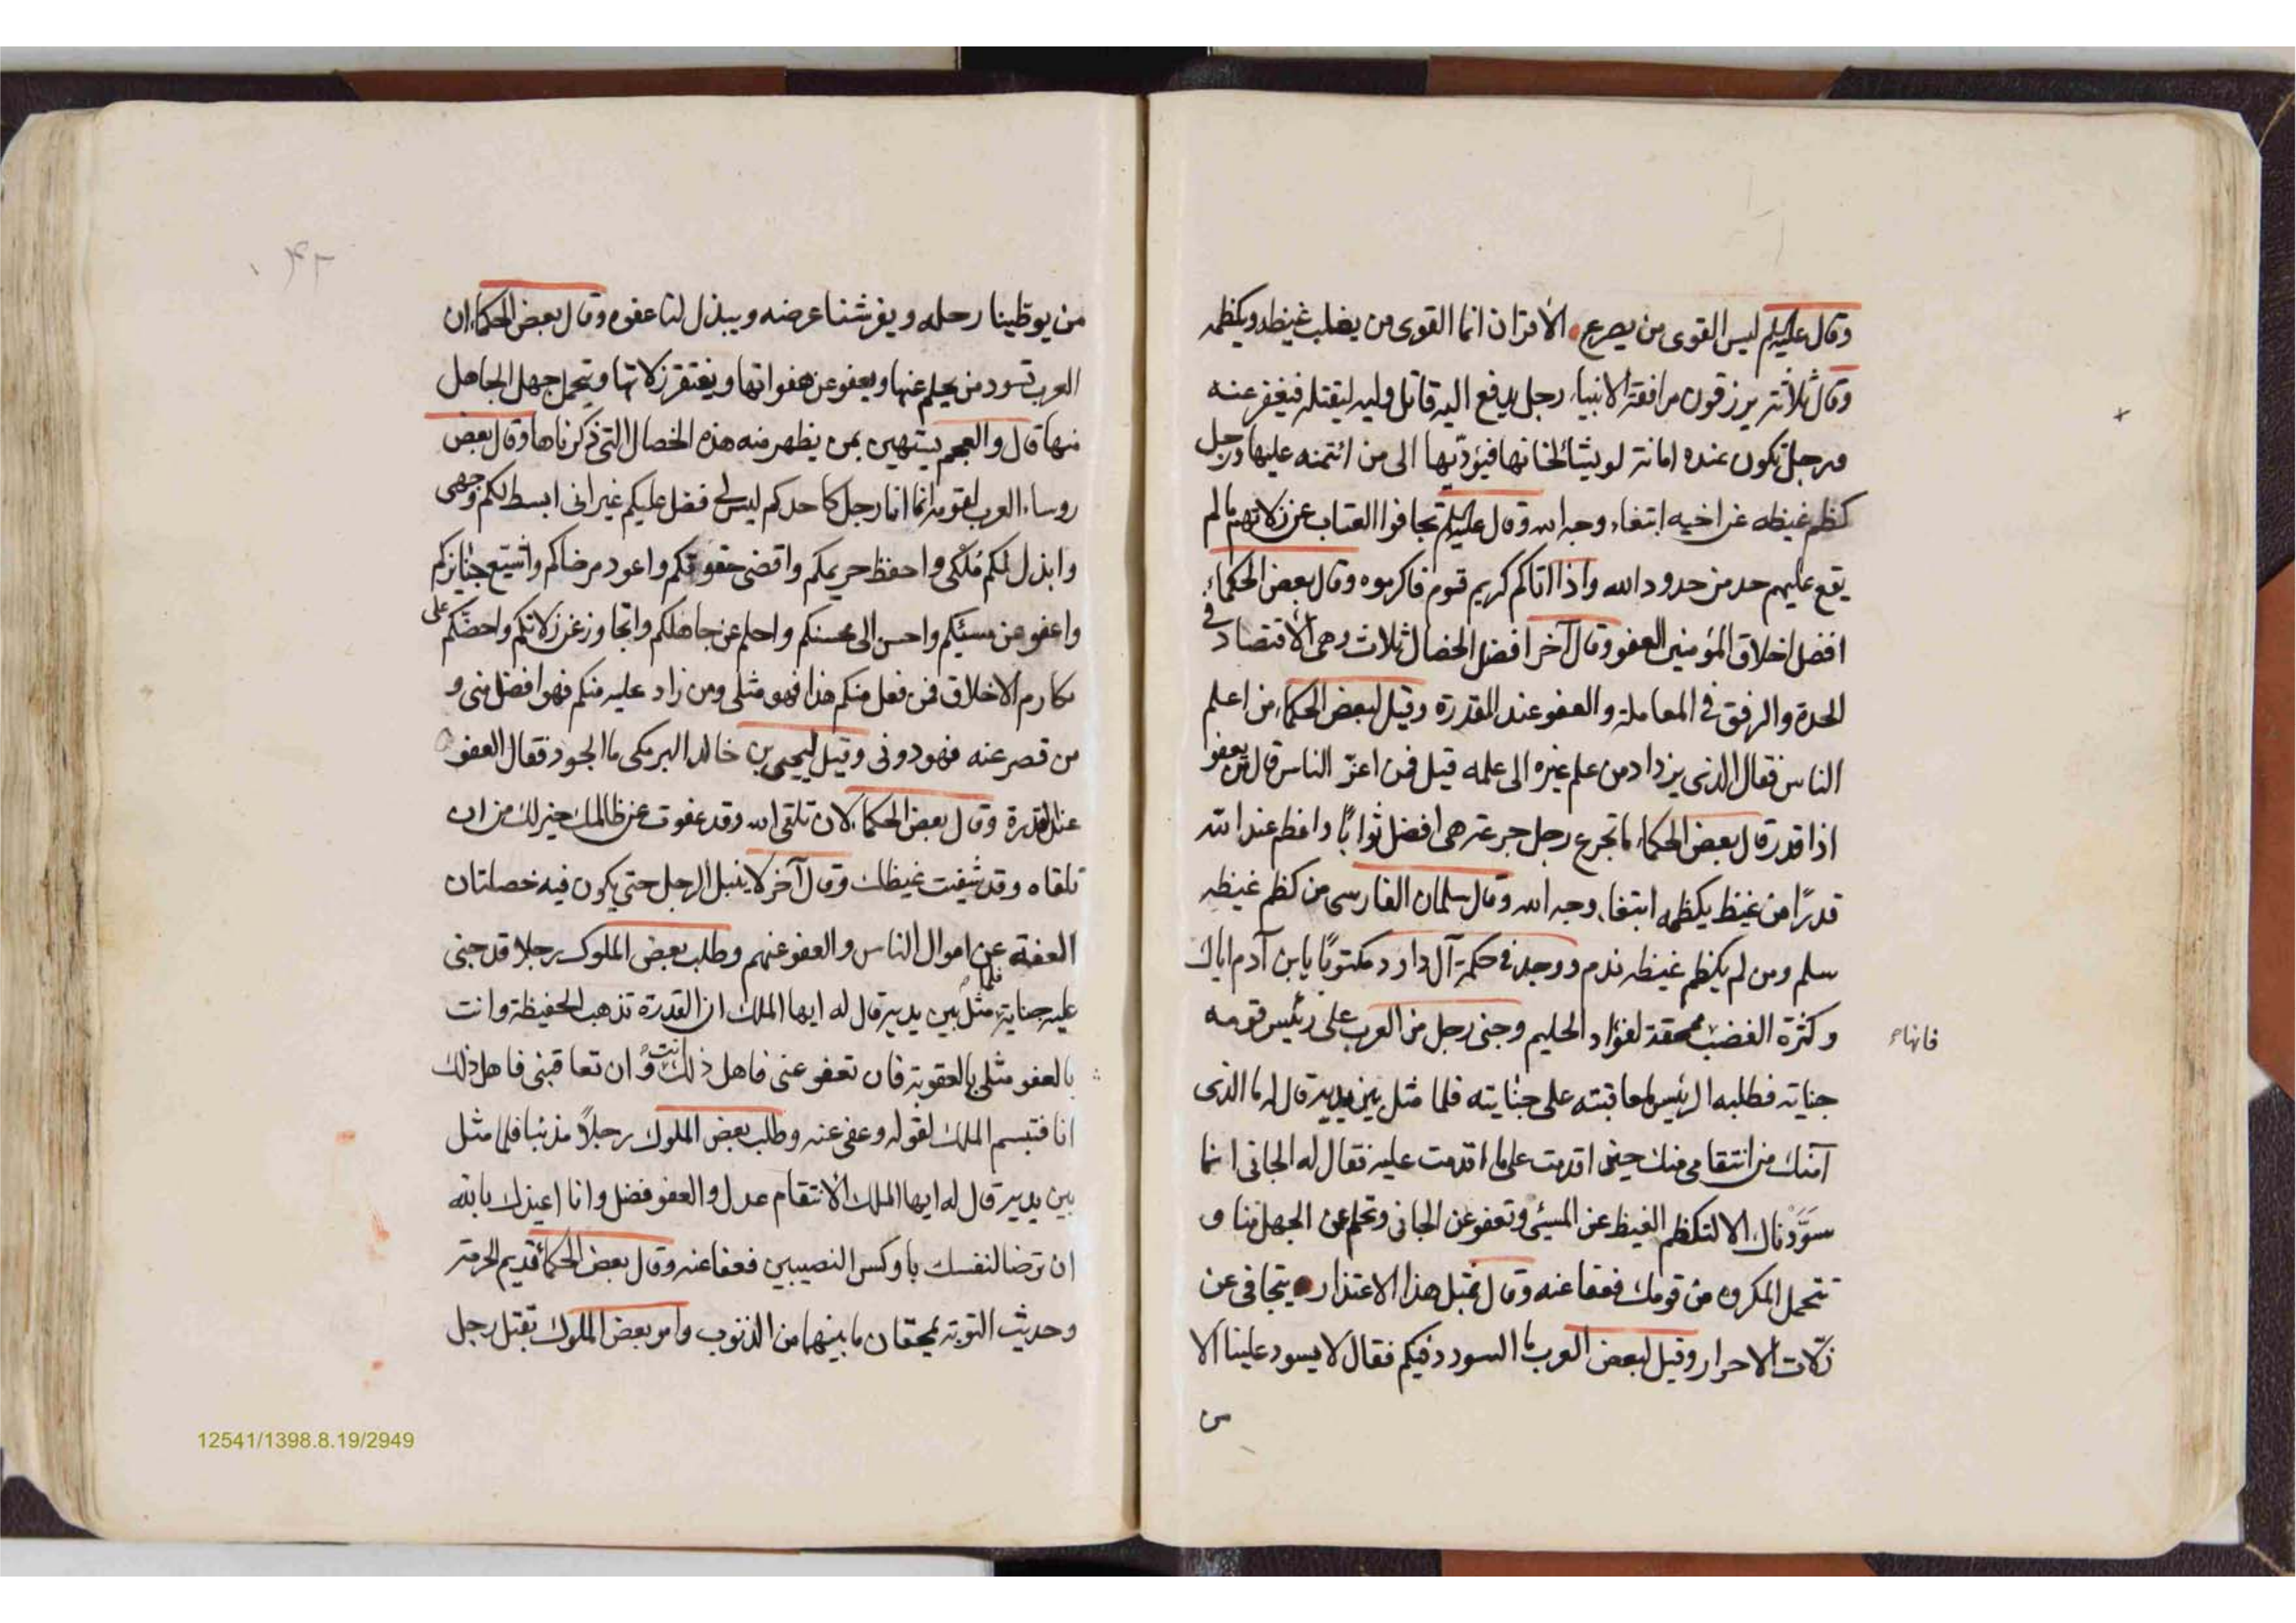 وقال عليه السلم ليس القوى من يصرع الأقران انما القوى من يغلب غيظه ويكظمه
وقال ثلاثة يرزقون مرافقة الانبياء رجل يدفع اليه قاتل وليه ليقتله فيغفر عنه
ورجل تكون عنده امانة لو يشاء لخانها فيؤدّيها الى من ائتمنه عليها ورجل
كظم غيظه عن اخيه ابتغاء وجه الله وقال عليه السلم تجافوا العتاب عن زلاتهم مالم
يقع عليهم حد من حدود الله واذا اتاكم كريم قوم فاكرموه وقال بعض الحكماء
افضل اخلاق المؤمنين العفو وقال آخر افضل الخصال ثلاث وهى الأقتصاد فى
الحدة والرفق فى المعاملة والعفو عند المقدرة وقيل لبعض الحكماء من اعلم
الناس فقال الذى يزداد من علم غيره الى علمه قيل فمن اعزّ الناس قال من يعفو
اذا قدر قال بعض الحكماء ما تجرع رجل جرعة هى افضل ثوابًا واعظم عند الله
قدرًا من غيظ يكظمه ابتغاء وجه الله وقال سلمان الفارسى من كظم غيظه
سلم ومن لم يكظم غيظه ندم ووجد فى حكمة آل داود مكتوبًا يابن آدم اياك
وكثرة الغضب ممحقة لفؤاد الحليم وجنى رجل من العرب على رئيس قومه
فانها
جناية فطلبه الرئيس لمعاقبته على جنايته فلما مثل بين يديه قال له ما الذى
آمنك من انتقامى منك حين اقدمت على ما اقدمت عليه فقال له الجانى انما
سوّدناك الا لتكظم الغيظ عن المسيئ وتعفو عن الجانى وتحلم عن الجهل منا و
تتحمل المكروه من قومك فعفا عنه وقال بمثل هذا الاعتذار يتجافى عن
زلّات الاحرار وقيل لبعض العرب ما السودد فيكم فقال لا يسود علينا الا
من
٤٢
من يوطينا رحله ويفرشنا عرضه ويبذل لنا عفوه وقال بعض الحكماء ان
العرب تسود من يحلم عنها ويعفو عن هفواتها ويغتفر زلاتها ويتحمل جهل الجاهل
منها قال والعجم يستهين بمن يظهر منه هذه الخصال التى ذكرناها وقال بعض
روساء العرب لقومه انما انا رجل كاحدكم ليس لى فضل عليكم غير انى ابسط لكم وجهى
وابذل لكم مُلكى واحفظ حريمكم واقضى حقوقكم واعود مرضاكم واشيّع جنايزكم
واعفو عن مسئيكم واحسن الى محسنكم واحلم عن جاهلكم واتجاوز عن زلاتكم واحضّكم على
مكارم الاخلاق فمن فعل منكم هذا فهو مثلى ومن زاد عليه منكم فهو افضل منى و
من قصر عنه فهو دونى وقيل ليحيى بن خالد البرمكى ما الجود فقال العفو
عند القدرة وقال بعض الحكماء لان تلقى الله وقد عفوت عن ظالمك خير لك من ان
تلقاه وقد شفيت غيظك وقال آخر لا ينبل الرجل حتى يكون فيه خصلتان
العفة عن اموال الناس والعفو عنهم وطلب بعض الملوك رجلا قد جنى
عليه جناية فلما مثل بين يديه قال له ايها الملك ان القدرة تذهب الحفيظة وانت
بالعفو مثلى بالعقوبة فان تعفو عنى فاهل ذلك انت وان تعاقبنى فاهل ذلك
انا فتبسم الملك لقوله وعفى عنه وطلب بعض الملوك رجلاً مذنبا فلما مثل
بين يديه قال له ايها الملك الأنتقام عدل والعفو فضل وانا اعيذك بالله
ان ترضا لنفسك باوكس النصيبين فعفا عنه وقال بعض الحكماء قديم الحرمة
وحديث التوبة يمحقان ما بينهما من الذنوب وامر بعض الملوك بقتل رجل
12541/1398.8.19/2949